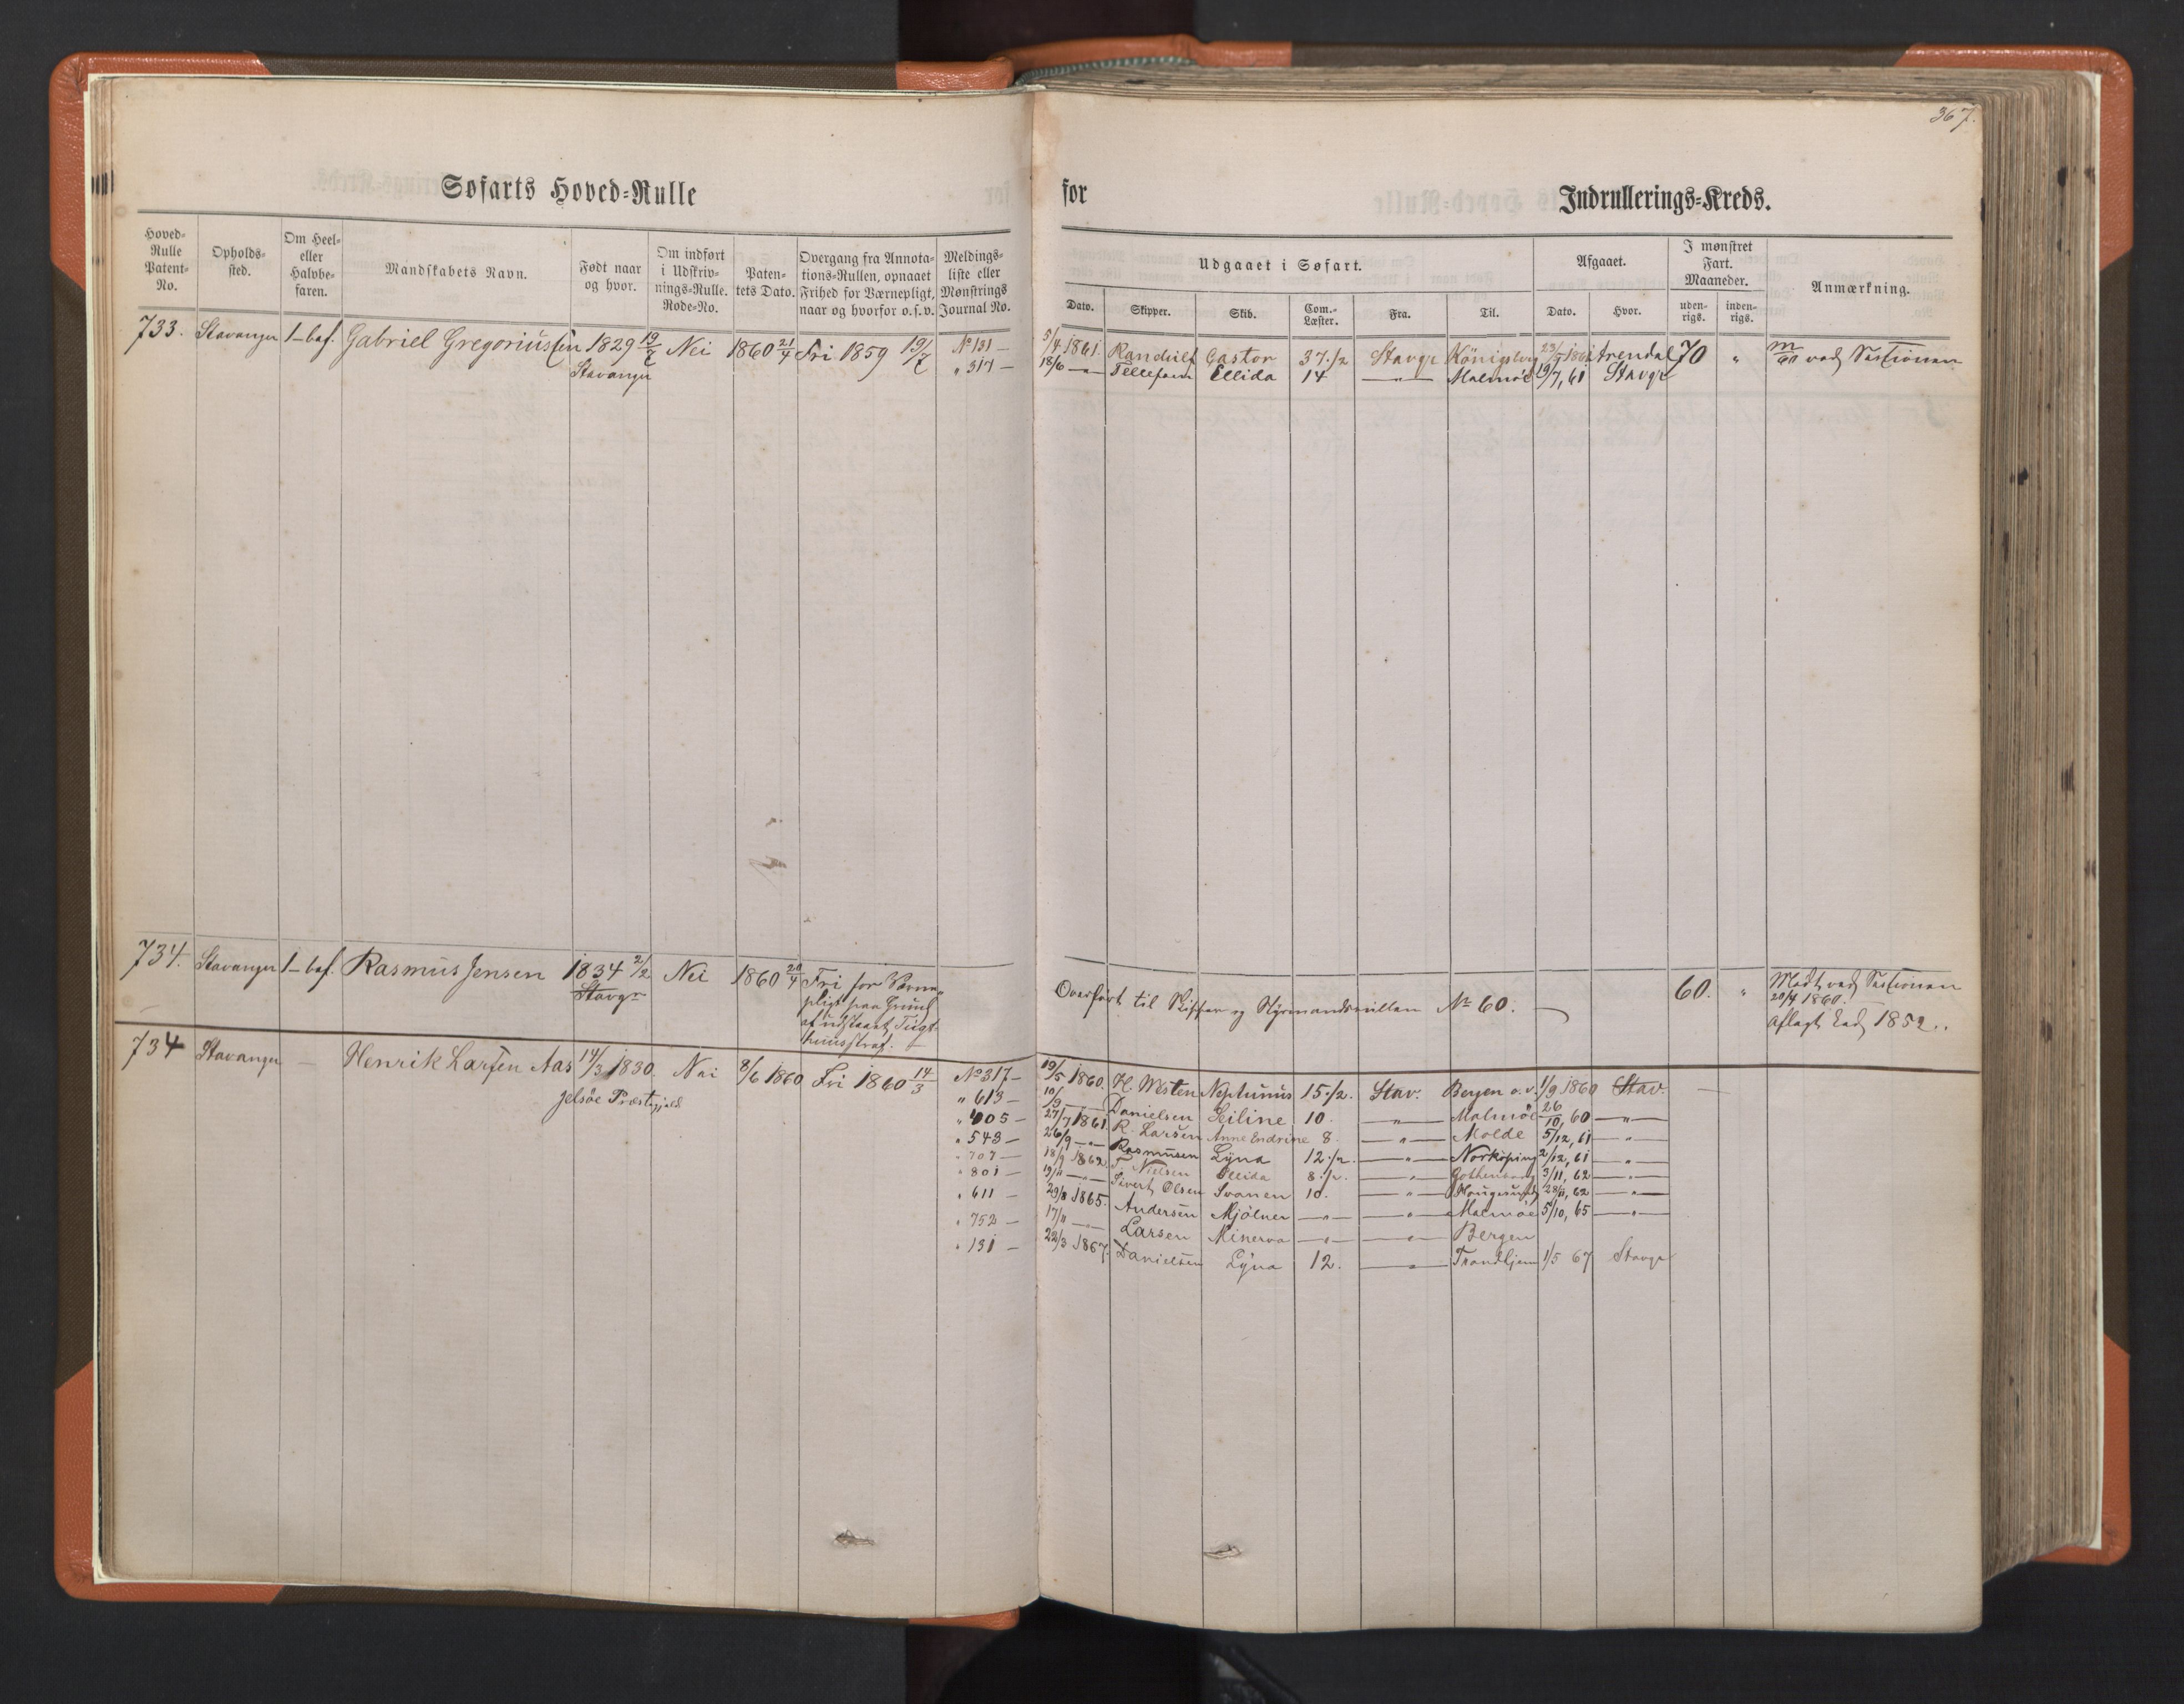 367.
Søfarts Hoved=Rulle for Indrullerings=Kreds.
Hoved=Rulle Patent=No.
Opholds=sted.
Om Heel= eller Halvbe=faren.
Mandskabets Navn.
Født naar og hvor.
Om indført i Udskriv=nings=Rulle. Rode=No.
Paten=tets Dato.
Overgang fra Annota=tions=Rullen, opnaaet Frihed for Værnepligt, naar og hvorfor o.s.v.
Meldings=liste eller Mønstrings Journal No.
Udgaaet i Søfart.
Dato. Skipper. Skib. Com.=Læster. Fra. Til.
Afgaaet.
Dato. Hvor.
I mønstret Fart. Maaneder.
uden=rigs. inden=rigs.
Anmærkning.
733. Stavanger 1-bef. Gabriel Gregoriussen 1829 19/7 Nei 1860 21/4 Fri 1859 19/7 No 131 — 5/4 1861. Castor 37 1/2 Stavgr Königsberg 23/5 1861 Arendal 70 " ved Sessionen
Stavanger " 317 — 18/6 —"— Tellefsen Ellida 14 —"— Malmöe 19/7, 61 Stavgr
734. Stavanger 1-bef. Rasmus Jensen 1834 2/2 Nei 1860 20/4 Fri for Værne= Overført til Skipper og Styrmandsrullen No 60. 60. " Mødt ved Sessionen
Stavgr pligt paa Grund 20/4 1860.
af udstaaet Tugt Aflagt Eed 1852.
huusstraf.
734 Stavanger — Henrik Larsen Aas 14/3 1830. Nei 8/6 1860 Fri 1860 14/3 No 317 — 19/5 1860. H. Westen Neptunus 15 1/2. Stav. Bergen o.v. 1/9 1860 Stav.
Jelsöe Præstegjeld. " 613 — 10/9 —"— Danielsen Seiline 10. —"— Malmöe 26/10, 60 —"—
" 405 — 27/7 1861. R. Larsen Anne Endrine 8. —"— Molde 5/12, 61 —"—
" 543 — 26/9 —"— Rasmussen Lyna 12 1/2. —"— Norkøping 2/12, 61 —"—
" 707 — 18/9 1862. T. Nielsen Ellida 8 1/2. —"— Gothenborg 3/11, 62 —"—
" 801 — 19/11 —"— Sivert Olsen Svanen 10. —"— Haugesund 28/11, 62 —"—
" 611 — 29/8 1865. Andersen Mjölner —"— —"— Malmöe 5/10, 65 —"—
" 752 — 17/11 —"— Larsen Minerva —"— —"— Bergen
" 131 — 22/3 1867. Danielsen Lyna 12. —"— Trondhjem 1/5 67 Stavgr